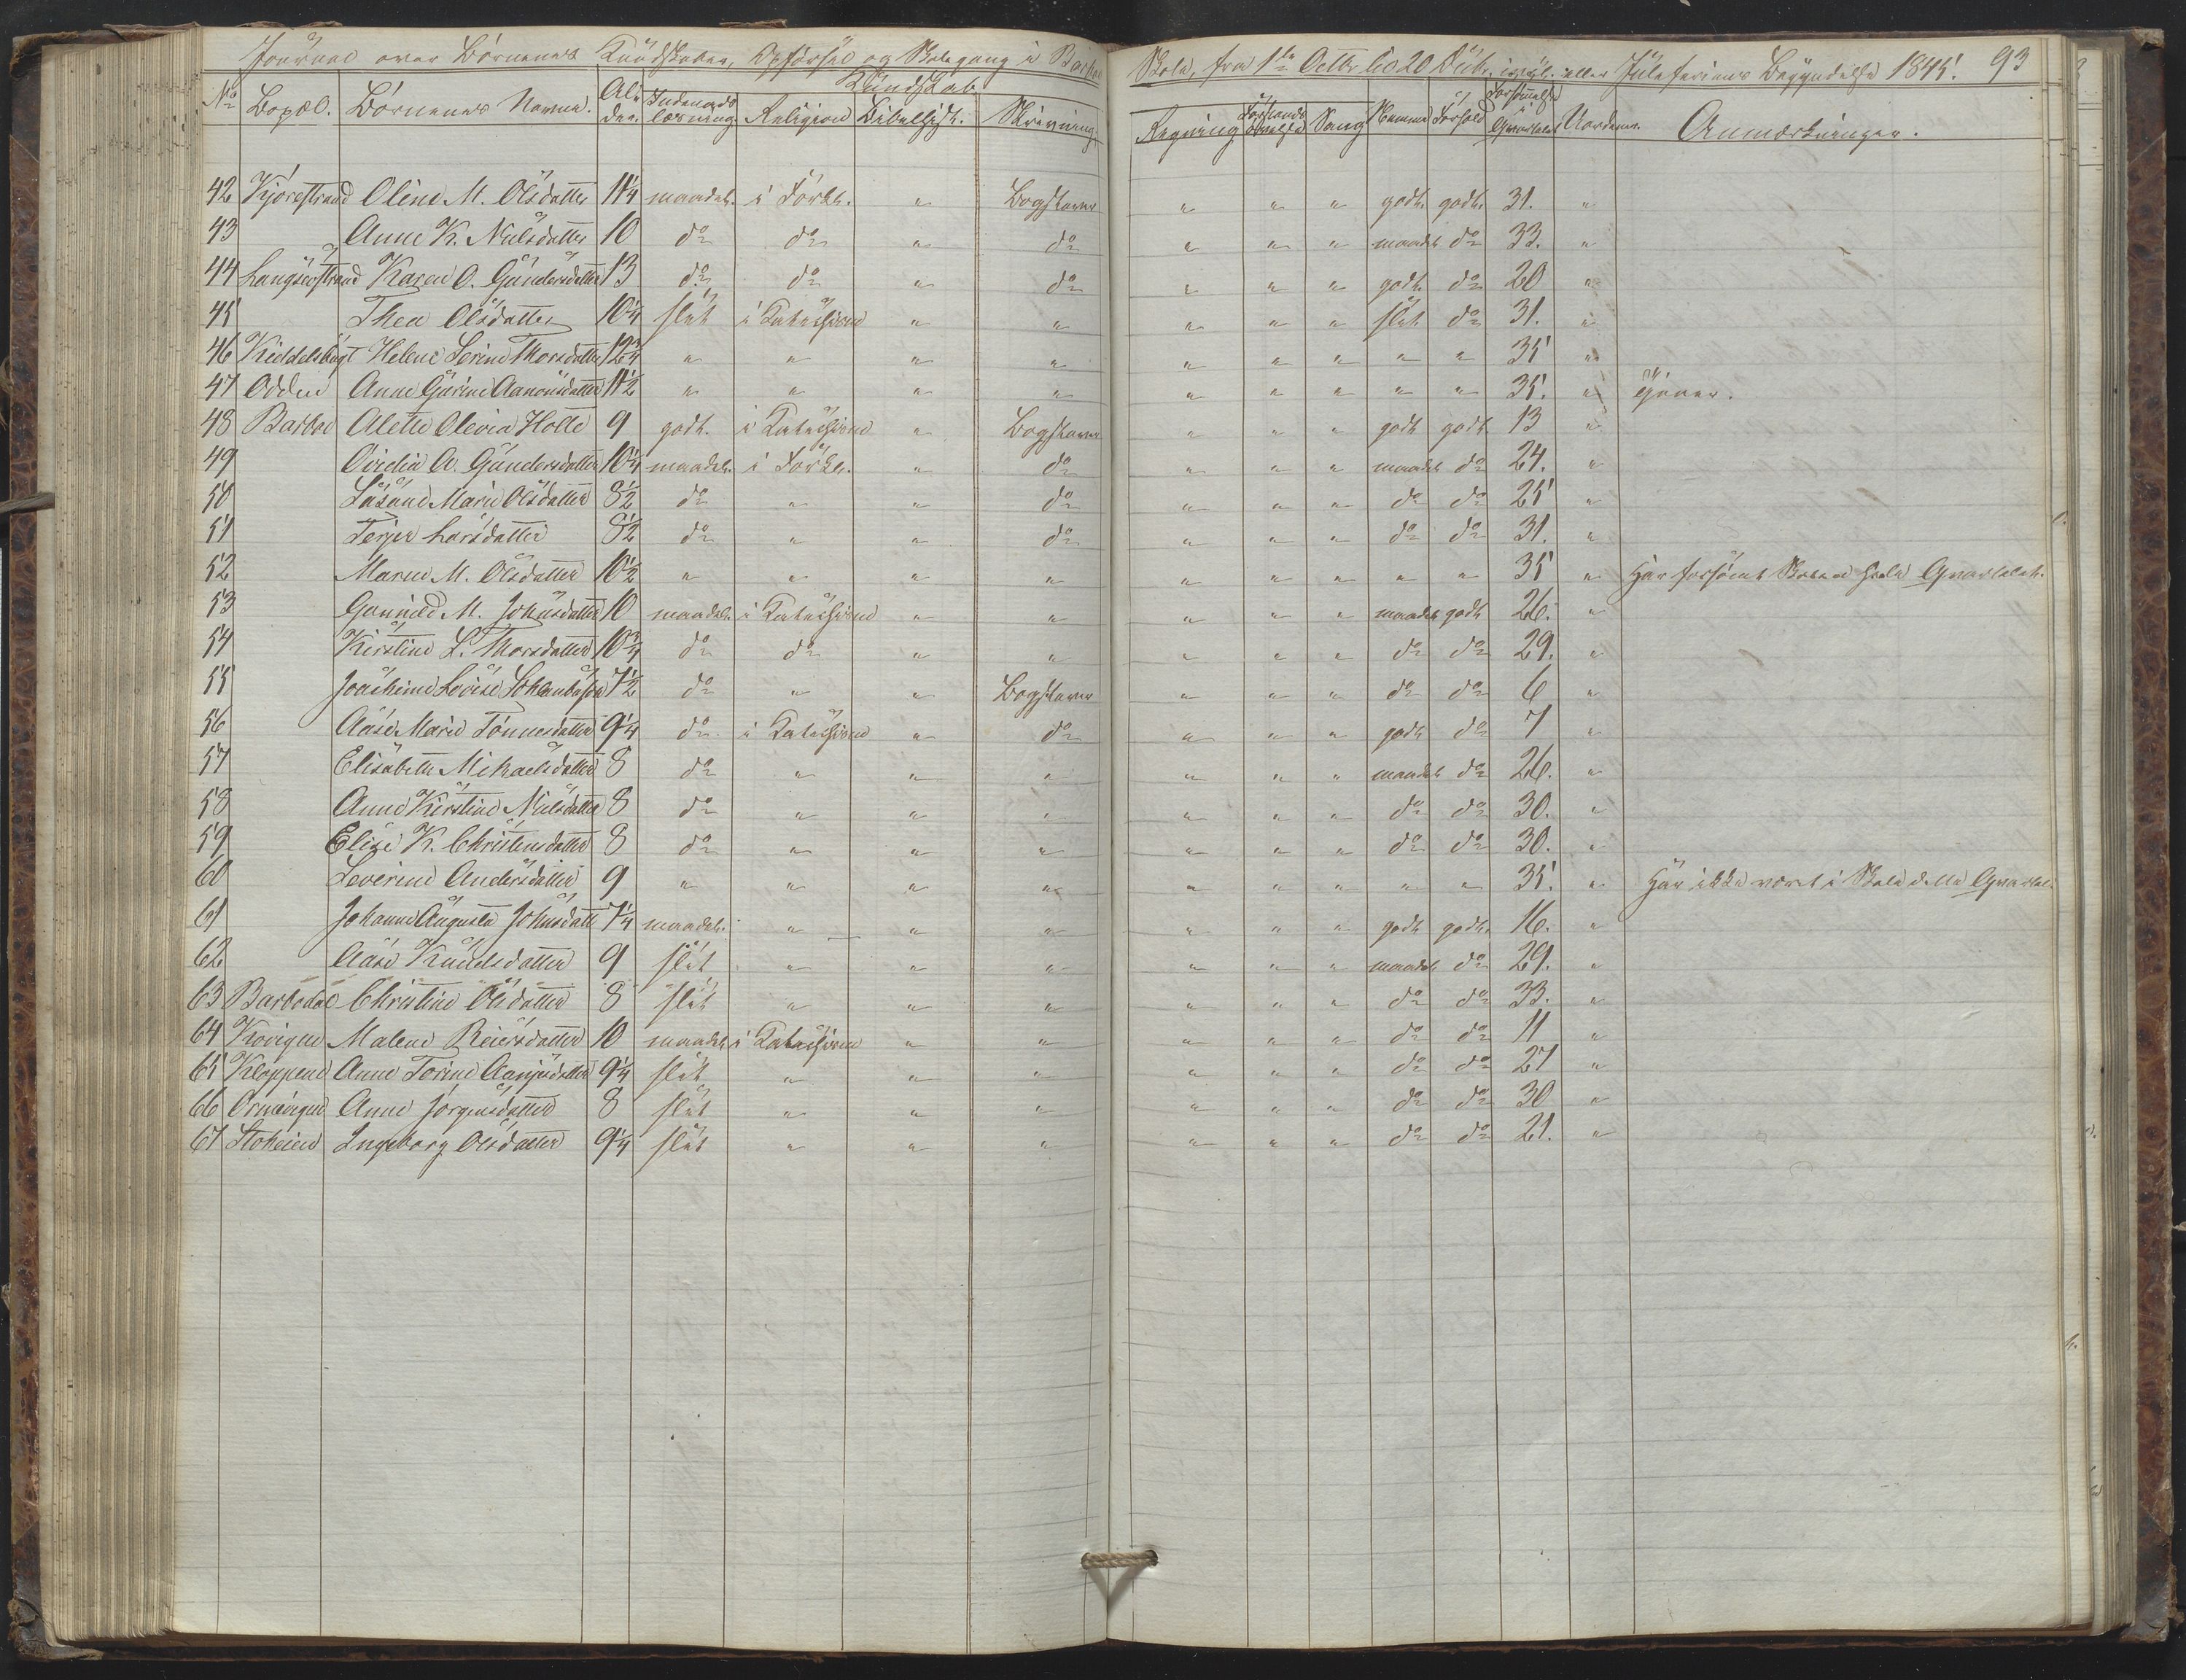 Journal over Börnenes Kundskaber, Opførsel og Skolegang i Barboe Skole, fra 1ste Octbr til 20 Decbr. eller Juleferiens Begyndelse 1845. 93
Kundskab
No Bopæl. Börnenes Navne. Alder. Indenadslæsning Religion Bibelhist. Skrivning Regning Forstandsøvelse Sang Nemme Forhold Forsømmelse i Qvartalet Uordener. Anmærkninger.
42 Kjörrestrand Oline M. Olsdatter 11 1/4 maadel. i Forkl. " Bogstaver " " " godt. godt. 31. "
43 Anne K. Nielsdatter 10 do do " do " " " maadel do 33. "
44 Langsæstrand Karen O. Gundersdatter 13 do do " do " " " godt do 20 "
45 Thea Olsdatter 10 1/4 slet i Katechismen " " " " " slet do 31. "
46 Kiddelsbugt Helene Serine Thorsdatter 12 3/4 " " " " " " " " " 35 "
47 Odden Anne Gurine Aanonsdatter 11 1/2 " " " " " " " " " 35. " tjener.
48 Barboe Alette Olevia Holte 9 godt. i Katechismen " Bogstaver " " " godt godt. 13 "
49 Ovidia A. Gundersdatter 10 1/4 maadel. i Forkl. " do " " " maadel do 24. "
50 Susane Marie Olsdatter 8 1/2 do " " do " " " do do 25 "
51 Terjer Larsdatter 8 1/2 do " " do " " " do do 31. "
52 Maren M. Olsdatter 10 1/2 " " " " " " " " " 35 " Har forsömt Skolen hele Qvartalet.
53 Gunnild M. Johnsdatter 10 maadel. i Katechismen " " " " " maadel godt 26. "
54 Kirstine L. Thorsdatter 10 3/4 do do " " " " " do do 29. "
55 Joachime Lovise 7 1/2 do " " Bogstaver " " " do do 6 "
56 Aase Marie Tönnesdatter 9 1/4 do i Katechismen " do " " " godt do 7 "
57 Elisabeth Mikaelsdatter 8 do " " " " " " maadel do 26. "
58 Anne Kirstine Nielsdatter 8 do " " " " " " do do 30. "
59 Elise K. Christensdatter 8 do " " " " " " do do 30. "
60 Severine Andersdatter 9 " " " " " " " " " 35. " Har ikke været i Skole dette Qvartal.
61 Johanne Augusta Johnsdatt 7 1/4 maadel. " " " " " " godt godt. 16. "
62 Aase Knudsdatter 9 slet " " " " " " maadel do 29. "
63 Barbodal Christine Olsdatter 8 slet " " " " " " do do 33. "
64 Krövigen Malene Reiersdatter 10 maadel. i Katechismen " " " " " do do 11 "
65 Kloppene Anne Torine Aanjusdatter 9 1/4 slet " " " " " " do do 27 "
66 Ormevigen Anne Jørgensdatter 8 slet " " " " " " do do 30 "
67 Stoheien Ingeborg Olsdatter 9 1/4 slet " " " " " " do do 21. "